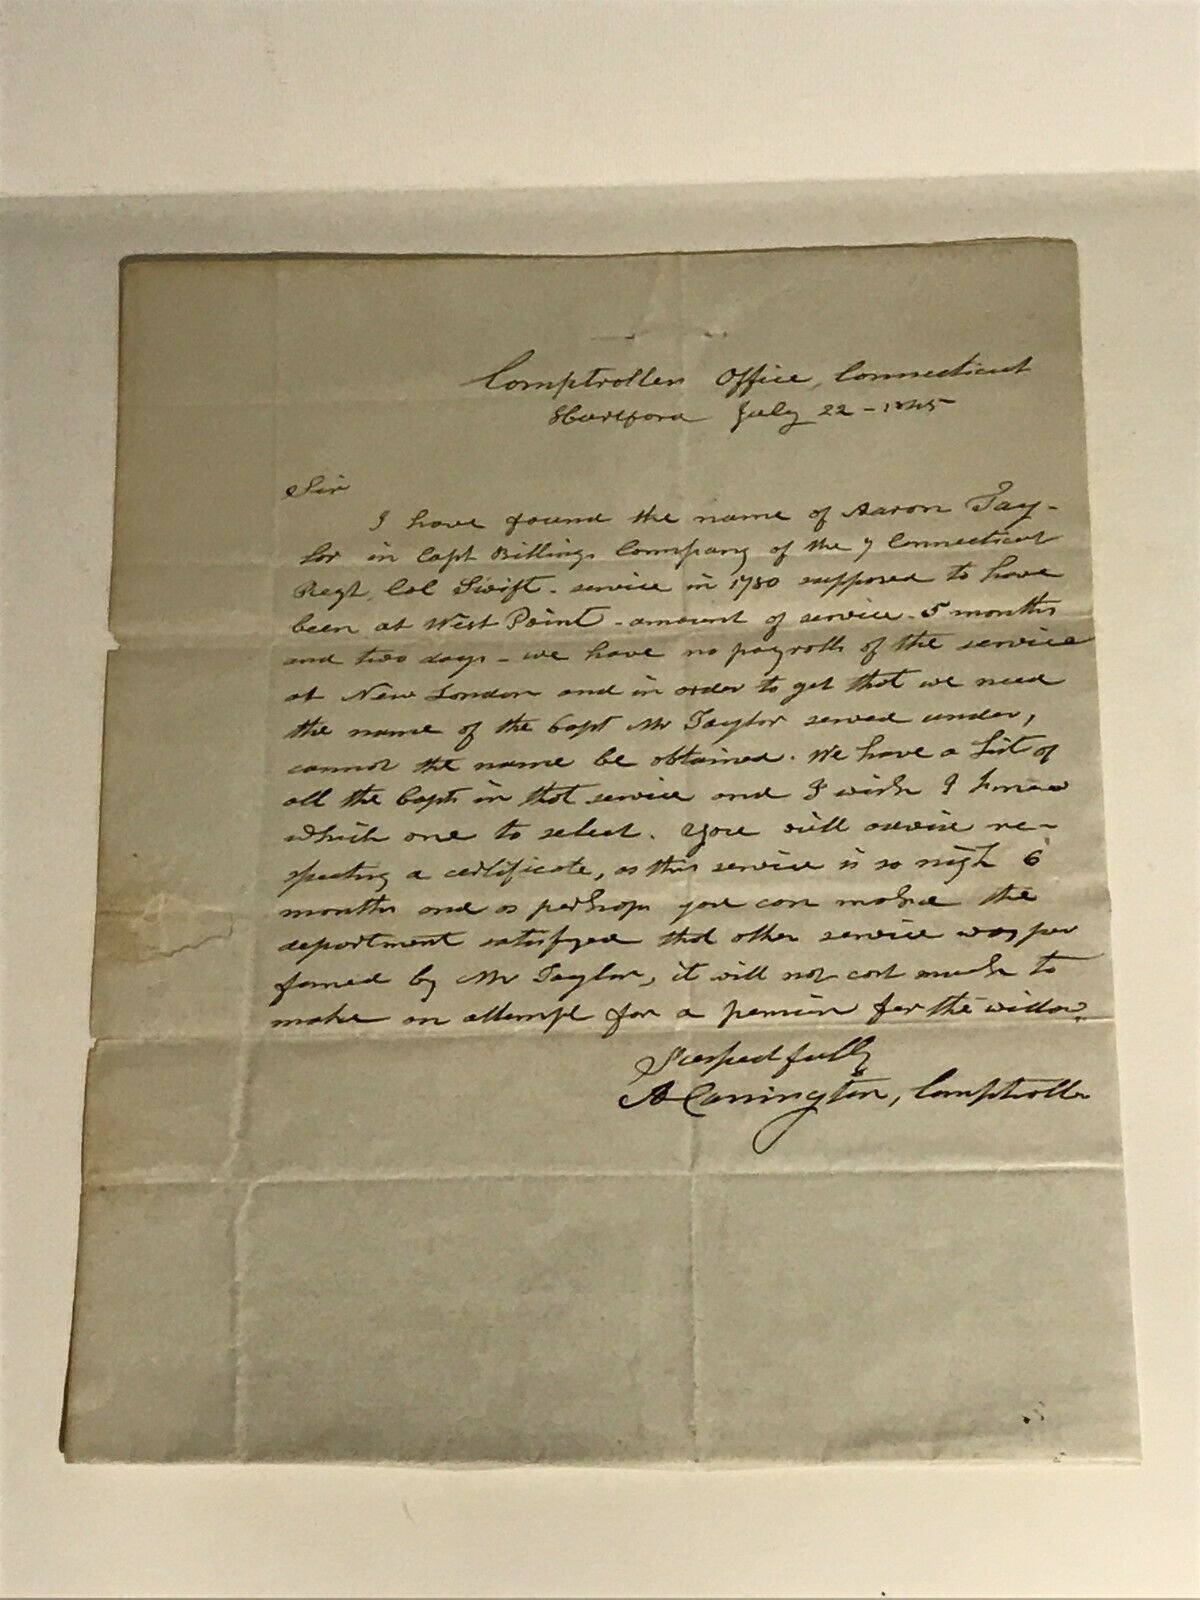 Comptrollers Office, Connecticut
Hartford July 22 - 1845
Sir
I have found the name of Aaron Tay-
lor in Capt Billings Company of the 7 Connecticut
Regt, Col Swift - service in 1780 supposed to have
been at West Point - amount of service - 5 months
and two days - we have no payrolls of the service
at New London and in order to get that we need
the name of the Capt Mr Taylor served under,
cannot the name be obtained. We have a list of
all the Capts in that service and I wish I knew
which one to select. You will advise re-
specting a certificate, as this service is so nigh 6
months and as perhaps you can make the
department satisfyed that other service was per
formed by Mr Taylor, it will not cost much to
make an attempt for a pension for the widow.
Respectfully
A Carrington, Comptroller